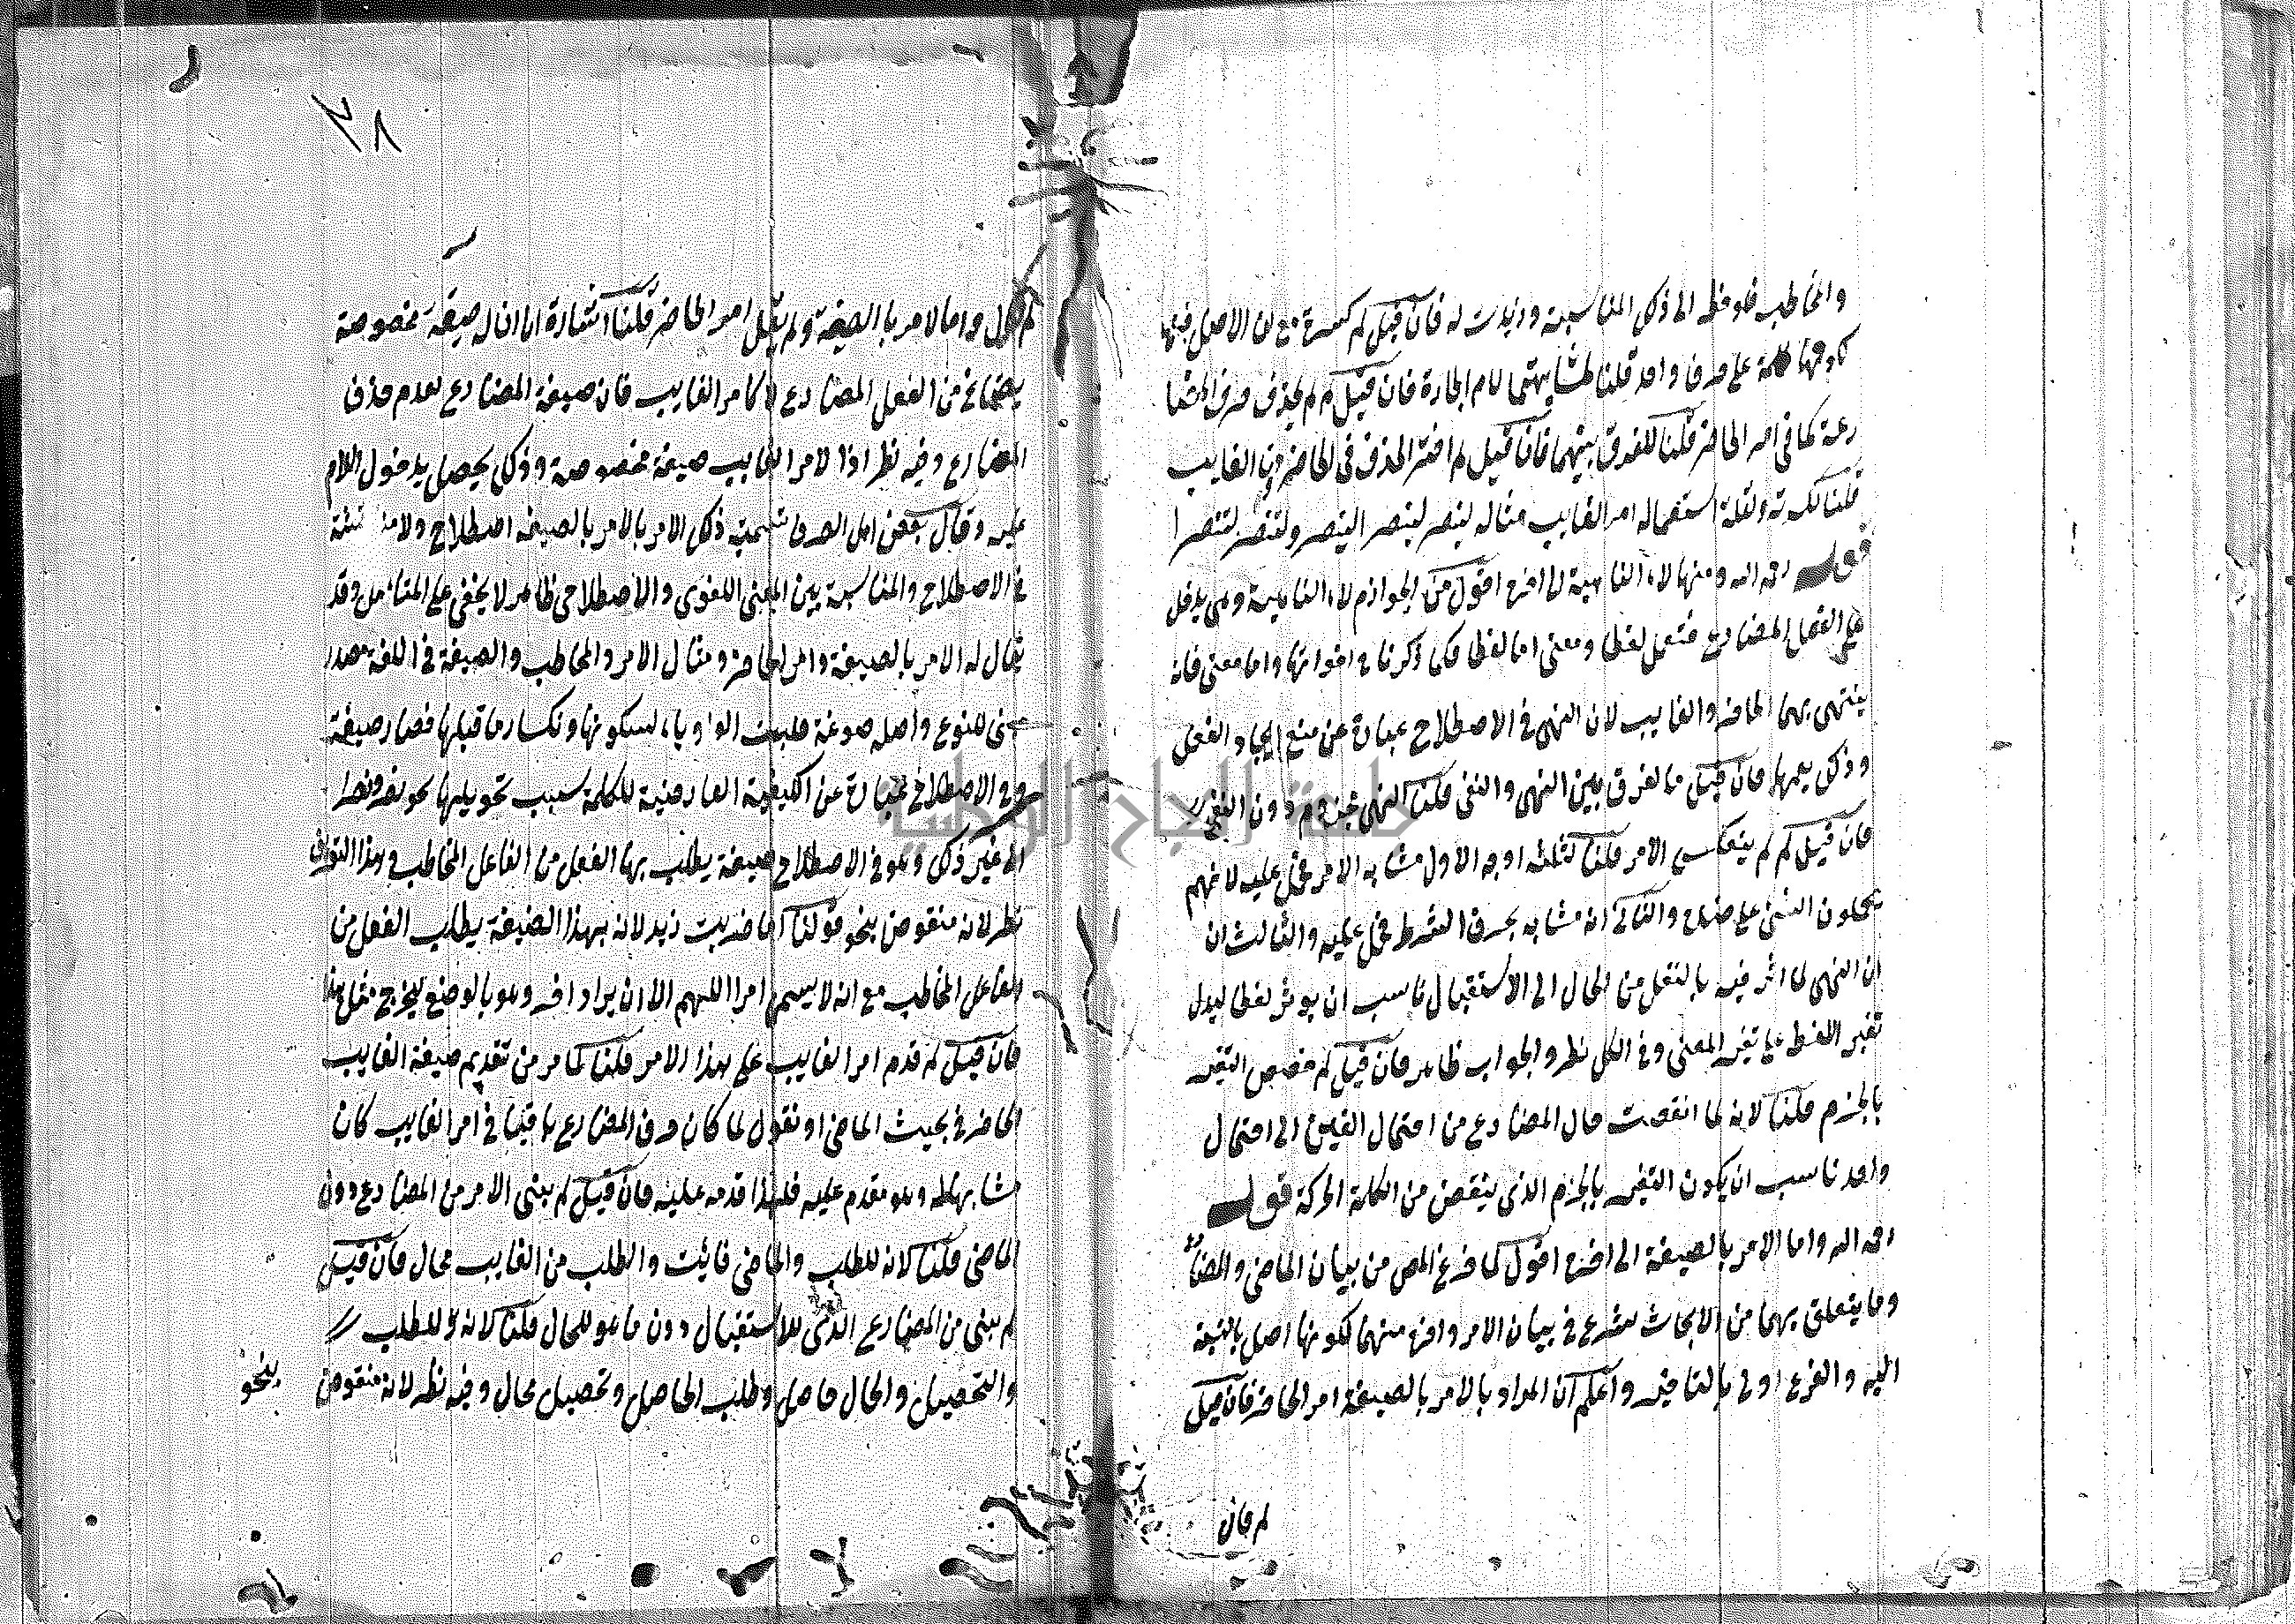 والمخاطب فلوحظ الى ذلك المناسبة وزيدت له فان قيل لم كسرت مع ان الاصل فيها
كلمة على حرف واحد قلنا لمشابهتها لام الجارة فان قيل لم لم يحذف حرف المضا
رعة كما في امر الحاضر قلنا للفرق بينهما فان قيل لم اختر الحذف في الحاضر دون الغايب
قلنا لكثرته ولقلة استعماله امر الغايب مثاله لينصر لينصرا لينصروا لتنصر لتنصرا
قوله رحمه الله ومنها لاء الناهية الى اخره اقول من الجوازم لاء الناهية وهي يدخل
على الفعل المضارع فتعمل لفظا ومعنى اما لفظا فكما ذكرنا في اخواتها واما معنى فانه
ينتهي بها الحاضر والغايب لان النهي في الاصطلاح عبارة عن منع ايجاد الفعل
وذلك يعمها فان قيل ما لفرق بين النهي والنفي قلنا النهي جزوم دون النفي
فان قيل لم لم ينعكس الامر قلنا لثلثه اوجه الاول مشابه الامر فحمل عليه لانهم
يحملون الشئ على ضده والثاني انه مشابه بحرف الشرط فحمل عليه والثالث ان
ان النهي لما اثر فيه بالنقل من الحال الى الاستقبال ناسب ان يوثر لفظا ليدل
تغير اللفظ على تغير المعنى وفي الكل نظر والجواب ظاهر فان قيل لم خصص التغير
بالجزم قلنا لانه لما انقصت حال المضارع من احتمال الى احتمال
واحد ناسب ان يكون التغير بالجزم الذي ينقص من الكلمة الحركة قوله
رحمه الله واما الامر بالصيغة الى اخره اقول لما فرغ المص من بيان الماضي والمضارع
وما يتعلق بهما من الابحاث شرع في بيان الامر واخره منهما لكونها اصل بالنسبة
اليه والفرع اولى بالتاخير واعلم ان المراد بالامر بالصيغة امر الحاضر فان قيل
لم قال
٣٨
لم قال واما الامر باالصيغة ولم يقل امر الحاضر قلنا اشارة الى ان له صيغة مخصوصة
من الفعل المضارع لا كامر الغايب فان صيغة المضارع لعدم حذف
المضارع وفيه نظر اذا لامر الغايب صيغة مخصوصة وذلك يحصل بدخول اللام
عليه وقال بعض اهل الصرف تسمية ذلك الامر بالامر بالصيغه اصطلاح ولا
في الاصطلاح والمناسبة بين المعنى اللغوى والاصطلاحي ظاهر لا يخفى على المتامل وقد
يقال له الامر بالصيغة وامر الحاضر ومثال الامر والمخاطب والصيغة في اللغة مصدر
للنوع واصله صوغة قلبت الواو ياء لسكونها ونكسار ما قبلها فصار صيغة
وفي الاصطلاح عبارة عن الكيفية العارضية للكلمة بسبب تحويلها نحو نصر ونصرا
الى غير ذلك وهو في الاصطلاح صيغة يطلب بها الفعل من الفاعل المخاطب وهذا التعريف
نظر لانه منقوض بنحو قولنا اما ضربت زيد لانه بهذا الصيغة يطلب الفعل من
الفاعل المخاطب مع انه لا يسمى امرا اللهم الا ان يراد اخر وهو بالوضع ليخرج مثل هذا
فان قيل لم قدم امر الغايب على هذا الامر قلنا لما مر من تقديم صيغة الغايب
الحاضر في بحيث الماضي او نقول لما كان حرف المضارع باقيا في امر الغايب كان
مشابها له وهو مقدم عليه فلهذا قدمه عليه فان قيل لم يبنى الامر من المضارع دون
الماضي قلنا لانه للطلب والماضي فائت والطلب من الغايب محال فان قيل
لم يبنى من المضارع الذي للاستقبال دون ما هو للحال قلنا لانه للطلب
والتحصيل والحال حاصل وطلب الحاصل وتحصيل محال وفيه نظر لانه منقوض
بنحو
جامعة النجاح الوطنية